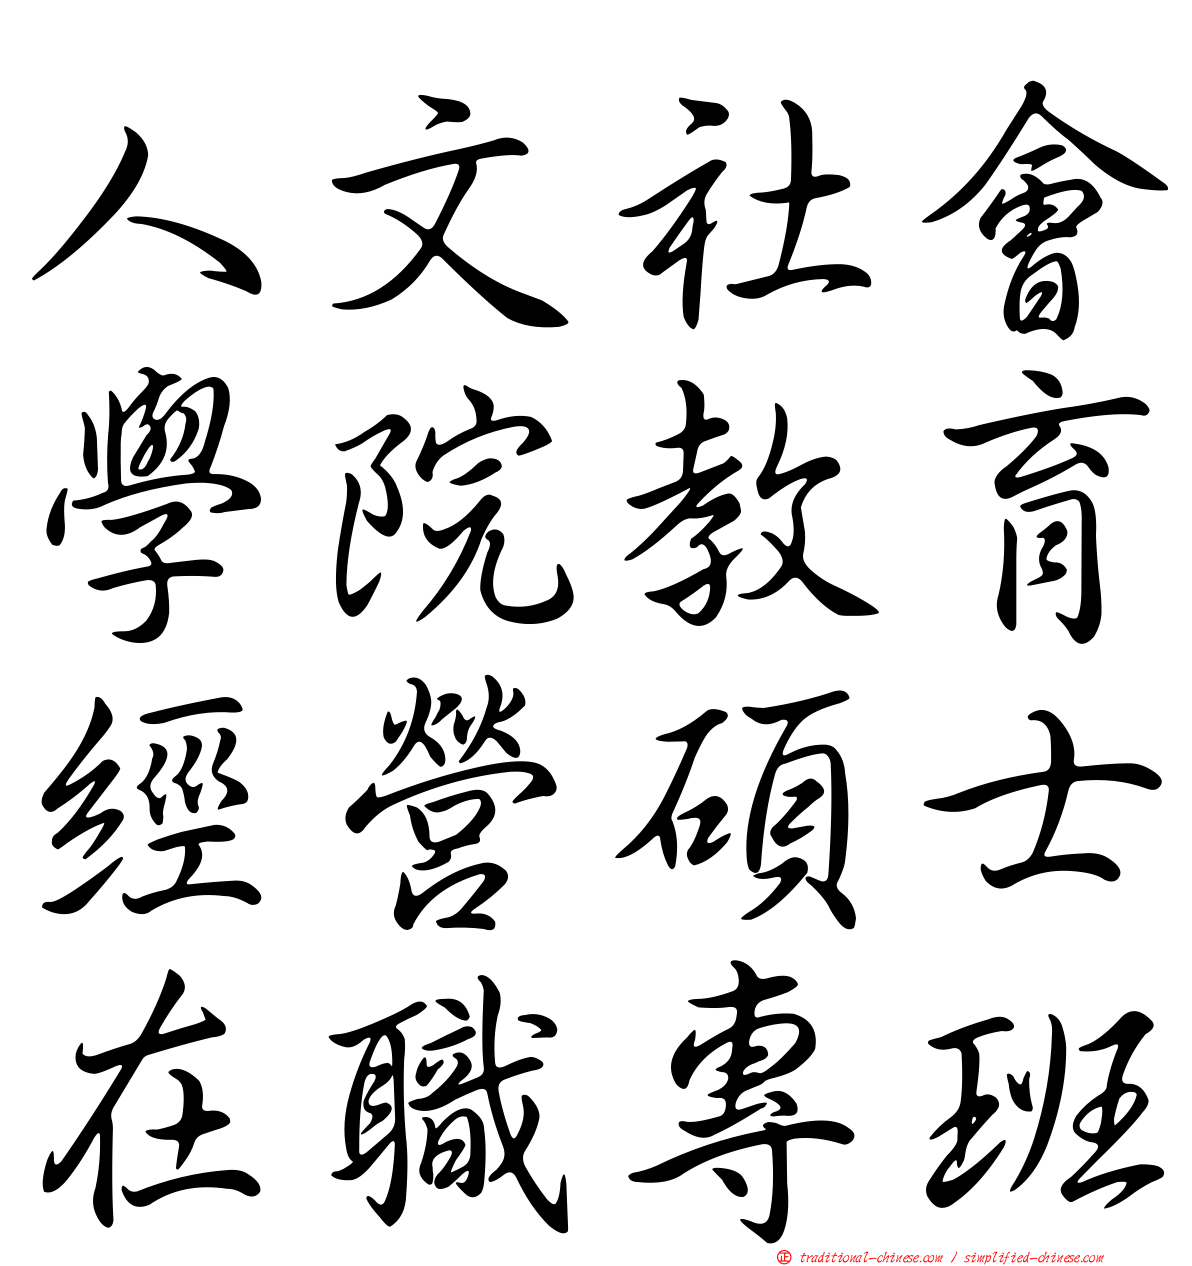 人文社會
學院教育
經營碩士
在職專班
正 traditional-chinese.com / simplified-chinese.com